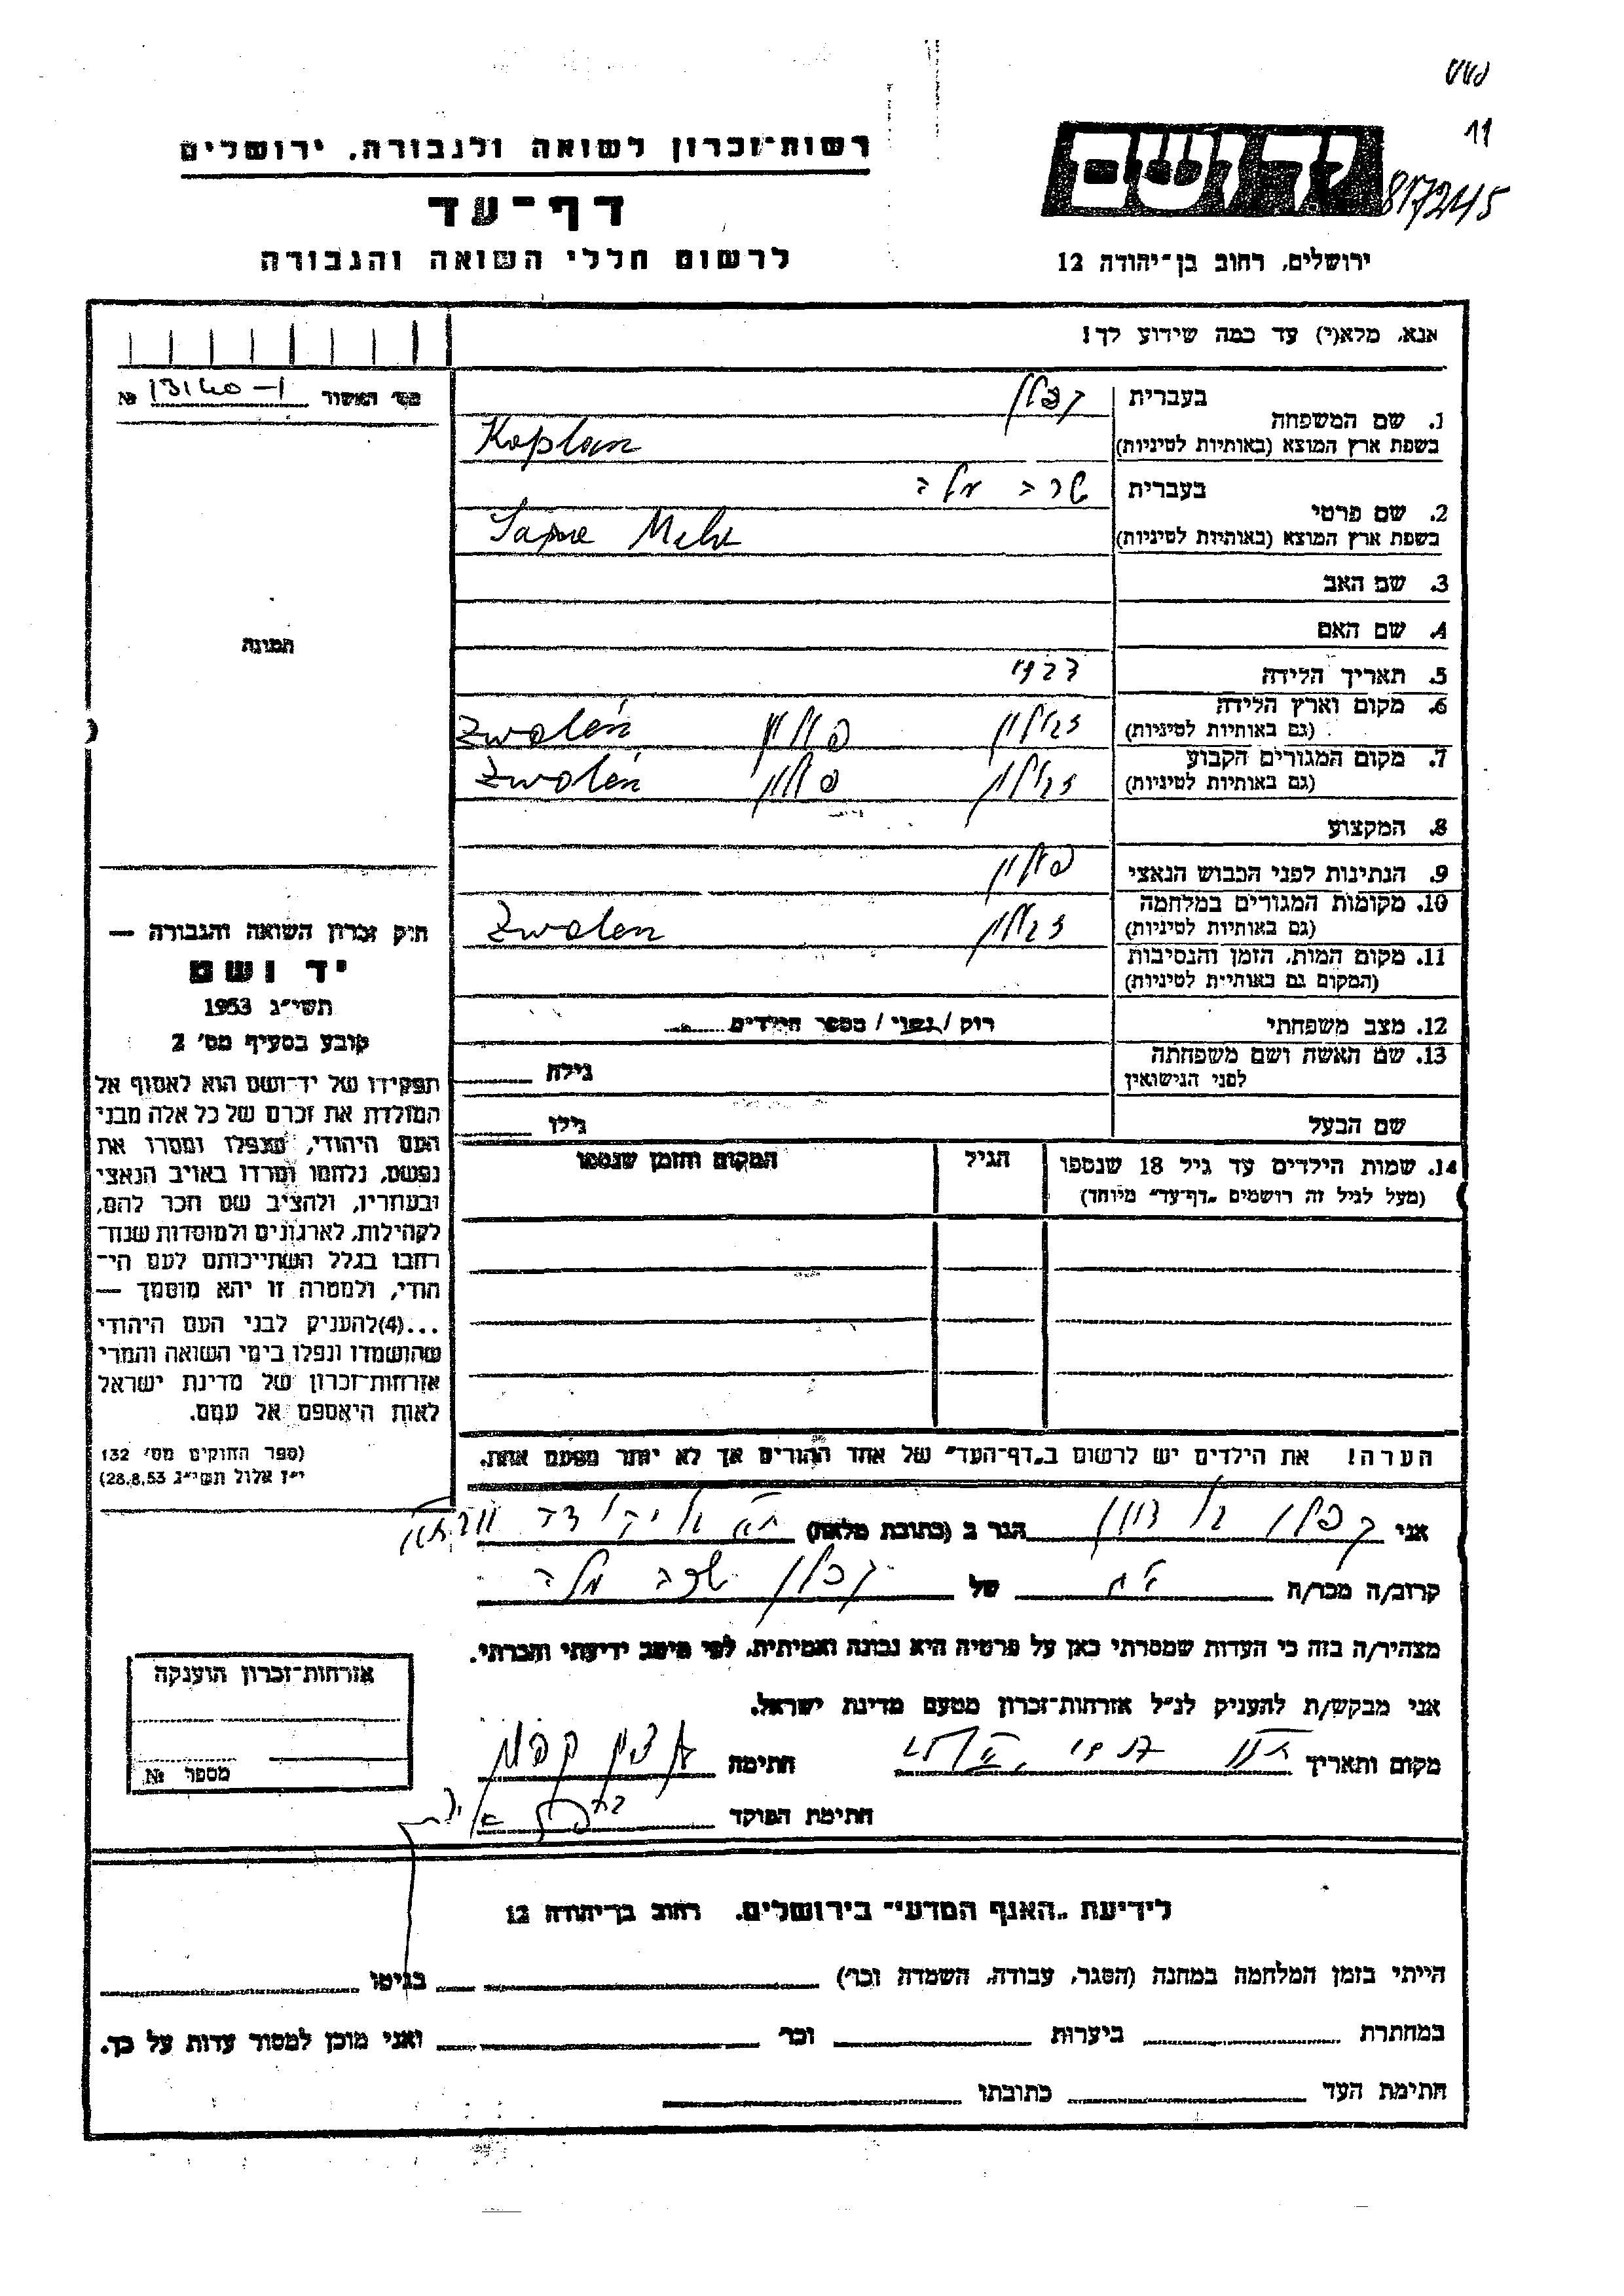 רשות־זכרון לשואה ולגבורה, ירושלים
דף־עד
לרשום חללי השואה והגבורה
ידושם
817245
ירושלים, רחוב בן־יהודה 12
אנא, מלא(י) עד כמה שידוע לך!
1. שם המשפחה
בעברית
קפלן
בשפת ארץ המוצא (באותיות לטיניות)
Kaplan
2. שם פרטי
בעברית
שרה מלה
בשפת ארץ המוצא (באותיות לטיניות)
3. שם האב
4. שם האם
5. תאריך הלידה
1923
6. מקום וארץ הלידה
(גם באותיות לטיניות)
זבולין פולין Zwoleń
7. מקום המגורים הקבוע
(גם באותיות לטיניות)
זבולין פולין Zwoleń
8. המקצוע
9. הנתינות לפני הכבוש הנאצי
פולין
10. מקומות המגורים במלחמה
(גם באותיות לטיניות)
זבולין Zwoleń
11. מקום המות, הזמן והנסיבות
(המקום גם באותיות לטיניות)
12. מצב משפחתי
רוק / נשוי / מספר הילדים
13. שם האשה ושם משפחתה
לפני הנישואין
גילה
שם הבעל
גילו
14. שמות הילדים עד גיל 18 שנספו
(מעל לגיל זה רושמים „דף־עד" מיוחד)
הגיל
המקום והזמן שנספו
הערה! את הילדים יש לרשום ב„דף־העד" של אחד ההורים אך לא יותר מפעם אחת.
№
תמונה
חוק זכרון השואה והגבורה —
יד ושם
תשי"ג 1953
קובע בסעיף מס' 2
תפקידו של יד־ושם הוא לאסוף אל
המולדת את זכרם של כל אלה מבני
העם היהודי, שנפלו ומסרו את
נפשם, נלחמו ומרדו באויב הנאצי
ובעוזריו, ולהציב שם וזכר להם,
לקהילות, לארגונים ולמוסדות שנח־
רבו בגלל השתייכותם לעם הי־
הודי, ולמטרה זו יהא מוסמך —
...(4)להעניק לבני העם היהודי
שהושמדו ונפלו בימי השואה והמרי
אזרחות־זכרון של מדינת ישראל
לאות היאספם אל עמם.
(ספר החוקים מס' 132
י"ז אלול תשי"ג 28.8.53)
אני קפלן הגר ב (כתובת מלאה)
קרוב/ה מכר/ה אח של קפלן שרה מלה
מצהיר/ה בזה כי העדות שמסרתי כאן על פרטיה היא נכונה ואמיתית, לפי מיטב ידיעתי והכרתי.
אני מבקש/ת להעניק לנ"ל אזרחות־זכרון מטעם מדינת ישראל.
מקום ותאריך
חתימה
חתימת הפוקד
אזרחות־זכרון הוענקה
מספר №
לידיעת „האגף המדעי" בירושלים, רחוב בן־יהודה 12
הייתי בזמן המלחמה במחנה (הסגר, עבודה, השמדה וכו') בגיטו
במחתרת ביערות וכו' ואני מוכן למסור עדות על כך.
חתימת העד כתובתו